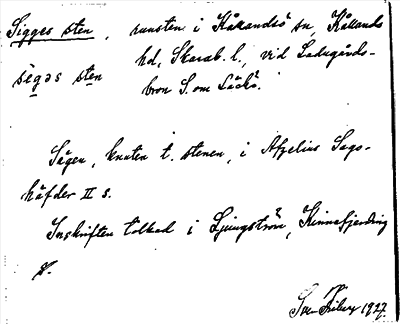 Sigges sten, runsten i Kållandsö sn, Kållands
hd, Skarab. l., vid Ladugårds-
segǝs sten
bron S. om Läckö.
Sägen, knuten t. stenen, i Afzelius Sago-
häfder II s.
Inskriften tolkad i Ljungström, Kinnefjerding
s.
1927.